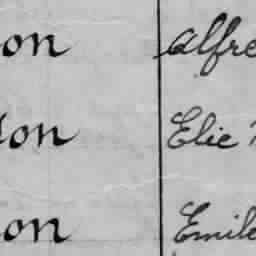 on Alfre
on Elie
on Emile